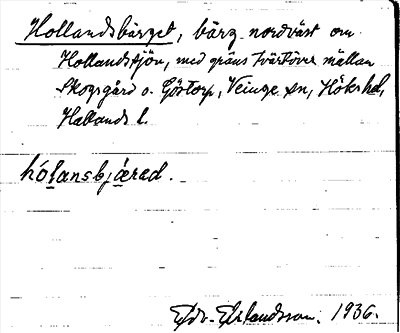 Hollandsbärget, bärg nordväst om
Hollandssjön, med gräns tvärtöver mällan
Skogsgård o. Göstorp, Veinge sn, Höks hd,
Hallands l.
hólansbjærad.
Edv. Erlandsson. 1936.